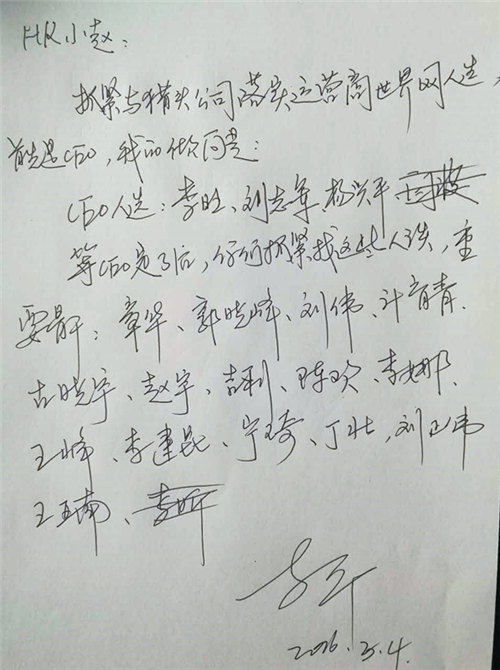 HR小赵：
抓紧与猎头公司落实运营商世界网人选，
首先是CEO，我的倾向是：
CEO人选：李旺、刘志军、杨兴平
等CEO定了后，你们抓紧找这些人谈，重
要骨干：章罕、郭晓峰、刘伟、计育青
古晓宇、赵宇、吉利、陈欢、李娜、
王峰、李建昆、宁琦、丁壮，刘正伟
王亚南、
2016.3.4